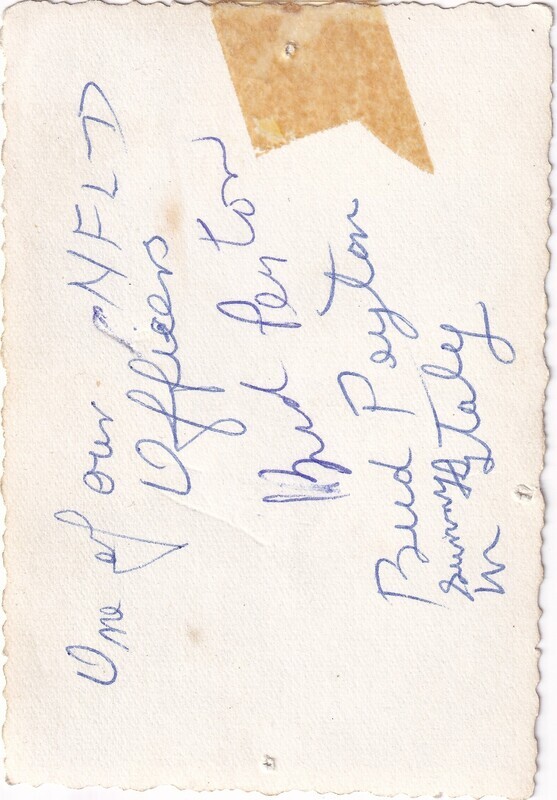 One of our NFLD
Officers
Bud Peyton
Bud Peyton
Sunny Italy
in